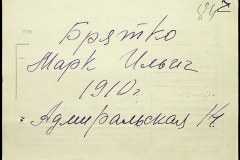 84
Брятко
Марк Ильич
1910 г.
Адмиральская 14.